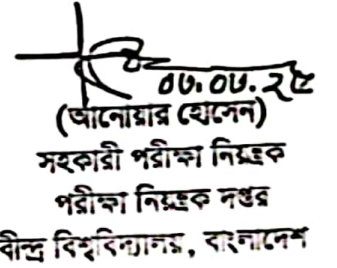 ০৬.০৬.২৫
(আনোয়ার হোসেন)
সহকারী পরীক্ষা নিয়ন্ত্রক
পরীক্ষা নিয়ন্ত্রক দপ্তর
বীন্দ্র বিশ্ববিদ্যালয়, বাংলাদেশ